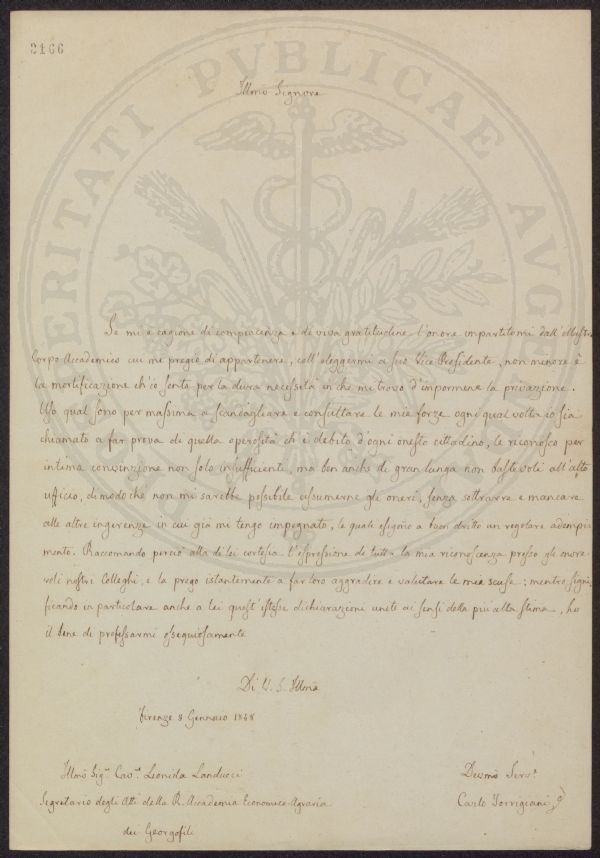 2166
PVBLICAE
Illmo Signore
Se mi è cagione di compiacenza e di viva gratitudine l'onore impartitomi dall'illustre
Corpo Accademico cui mi pregio di appartenere, coll'eleggermi a suo Vice Presidente, non minore è
la mortificazione ch'io sento per la dura necessità in che mi trovo d'impormene la privazione.
Uso qual sono per massima a scandagliare e consultare le mie forze ogni qual volta io sia
chiamato a far prova di quella operosità ch'è debito d'ogni onesto cittadino, le riconosco per
intima convinzione non solo insufficienti, ma ben anche di gran lunga non bastevoli all'alto
ufficio, di modo che non mi sarebbe possibile assumerne gli oneri, senza sottrarre e mancare
alle altre ingerenze in cui già mi tengo impegnato, le quali esigono a buon dritto un regolare adempi
mento. Raccomando perciò alla di lei cortesia l'espressione di tutta la mia riconoscenza presso gli onore
voli nostri Colleghi, e la prego istantemente a far loro aggradire e valutare le mie scuse; mentre signi
ficando in particolare anche a lei quest'istesse dichiarazioni unite ai sensi della più alta stima, ho
il bene di professarmi ossequiosamente
Di V. S. Illma
Firenze 8 Gennaio 1848
Illmo Sigr. Cavre. Leonida Landucci
Segretario degli Atti della R. Accademia Economico-Agraria
dei Georgofili
Devmo Servo
Carlo Torrigiani